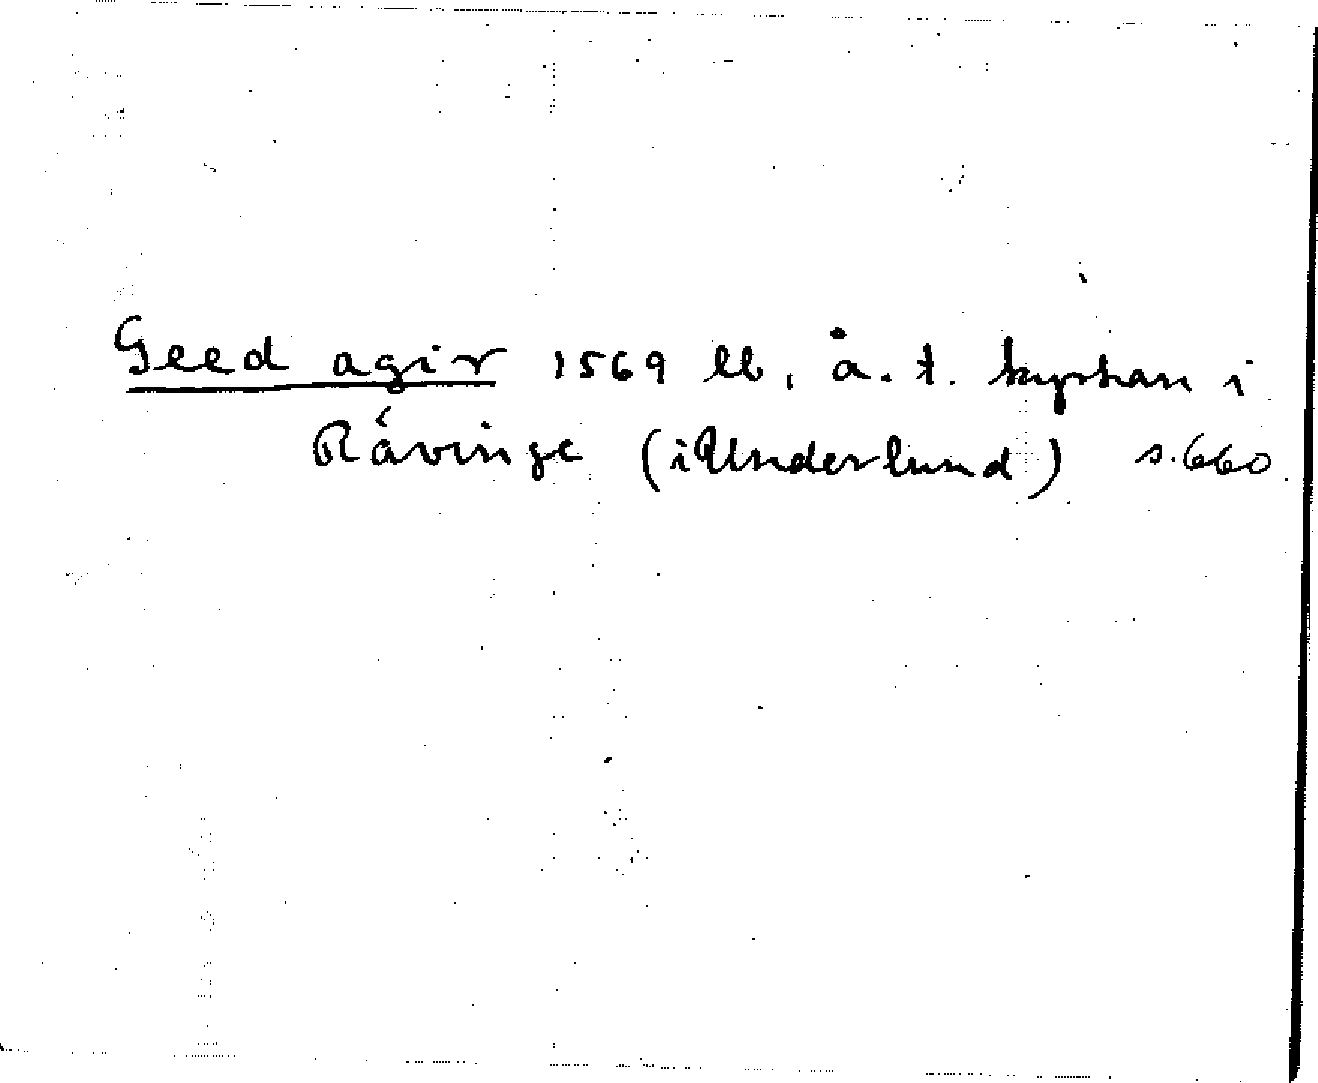 Geed agir 1569 lb, å. t. kyrkan i
Rávinge (i Underlund) s. 660